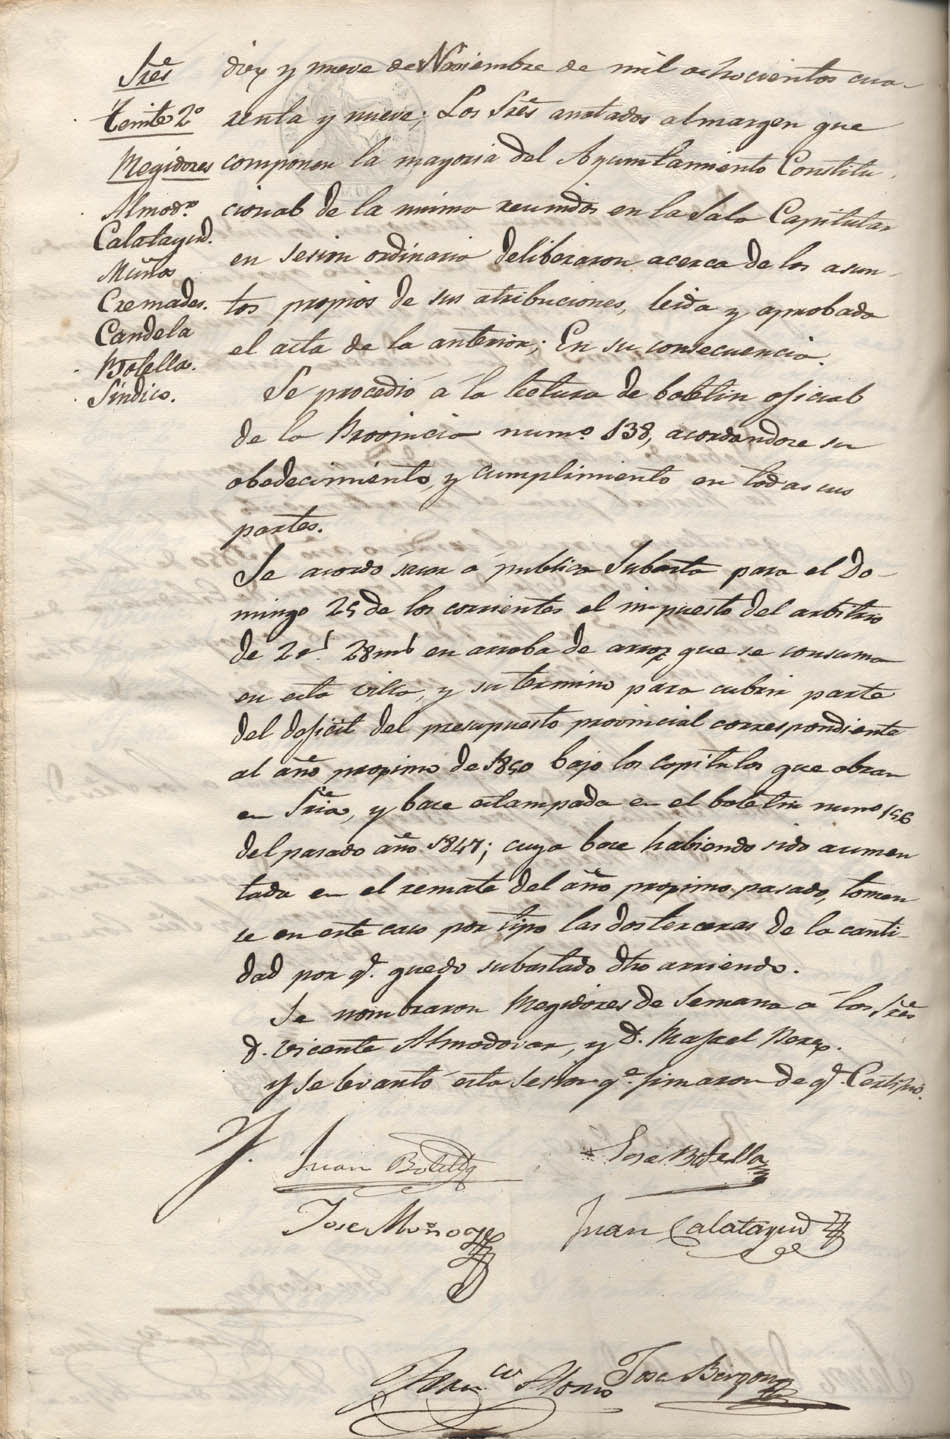 Sres
Tenite 2º
Regidores
Almodr
Calatayud.
Muños
Cremades.
Candela
Botella.
Síndico.
diez y nueve de Noviembre de mil ochocientos cua-
renta y nueve; Los Sres anotados al margen que
componen la mayoria del Ayuntamiento Constitu-
cional de la misma reunidos en la Sala Capitular
en sesion ordinaria deliberaron acerca de los asun-
tos propios de sus atribuciones, leida y aprobada
el acta de la anterior; En su consecuencia.
Se procedió á la lectura de boletin oficial
de la Provincia numº 138, acordandose su
obedecimiento, y cumplimiento en todas sus
partes.
Se acordó sacar á publica Subasta para el Do-
mingo 25 de los corrientes el impuesto del arbitrio
de 2 rs. 28 ms en arroba de arroz que se consuma
en esta villa, y su termino para cubrir parte
del deficit del presupuesto provincial correspondiente
al año proximo de 1850 bajo los capitulos que obran
en Sria, y base estampada en el boletin numº 156
del pasado año 1847; cuya base habiendo sido aumen
tada en el remate del año proximo pasado, tomen
se en este caso por tipo las dos terceras de la canti-
dad por q. quedo subastado dho arriendo.
Se nombraron Regidores de Semana á los Sres
D. Vicente Almodovar, y D. Rafael
Y se levantó esta sesion q.e firmaron de q.e Certifico.
Juan Botella
Jose Botella
Jose Muños
Juan Calatayud
Franco Alonso
Jose